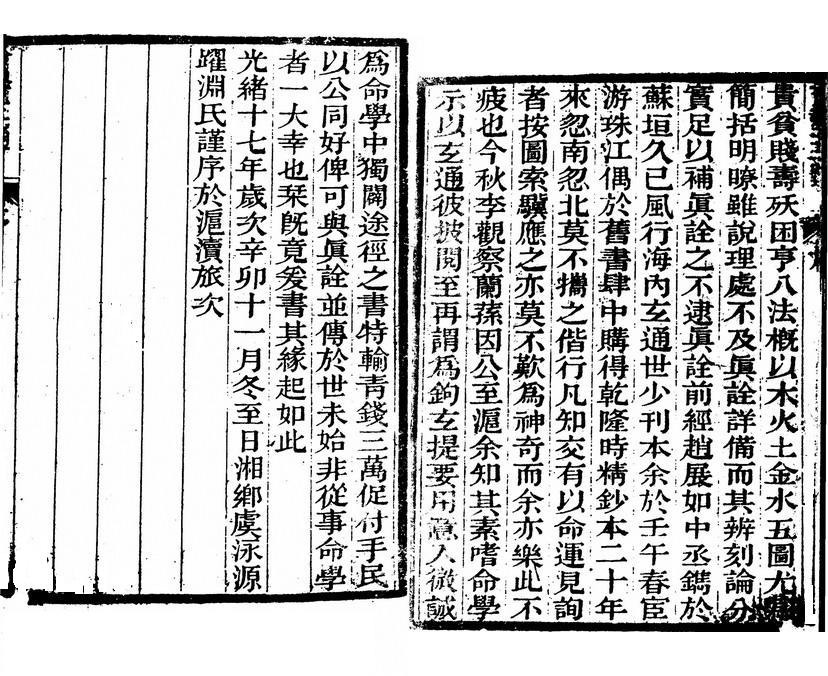 貴貧賤壽殀困亨八法概以木火土金水五圖尤
簡括明暸雖說理處不及眞詮詳備而其辨刻論分
實足以補眞詮之不逮眞詮前經趙展如中丞鐫於
蘇垣久已風行海內玄通世少刊本余於壬午春宦
游珠江偶於舊書肆中購得乾隆時精鈔本二十年
來忽南忽北莫不攜之偕行凡知交有以命運見詢
者按圖索驥應之亦莫不歎爲神奇而余亦樂此不
疲也今秋李觀察蘭蓀因公至滬余知其素嗜命學
示以玄通彼披閱至再謂爲鉤玄提要用意入微誠
爲命學中獨闢途徑之書特輸青錢三萬促付手民
以公同好俾可與眞詮並傳於世未始非從事命學
者一大幸也棊旣竟爰書其緣起如此
光緒十七年歲次辛卯十一月冬至日湘鄉虞泳源
躍淵氏謹序於滬瀆旅次